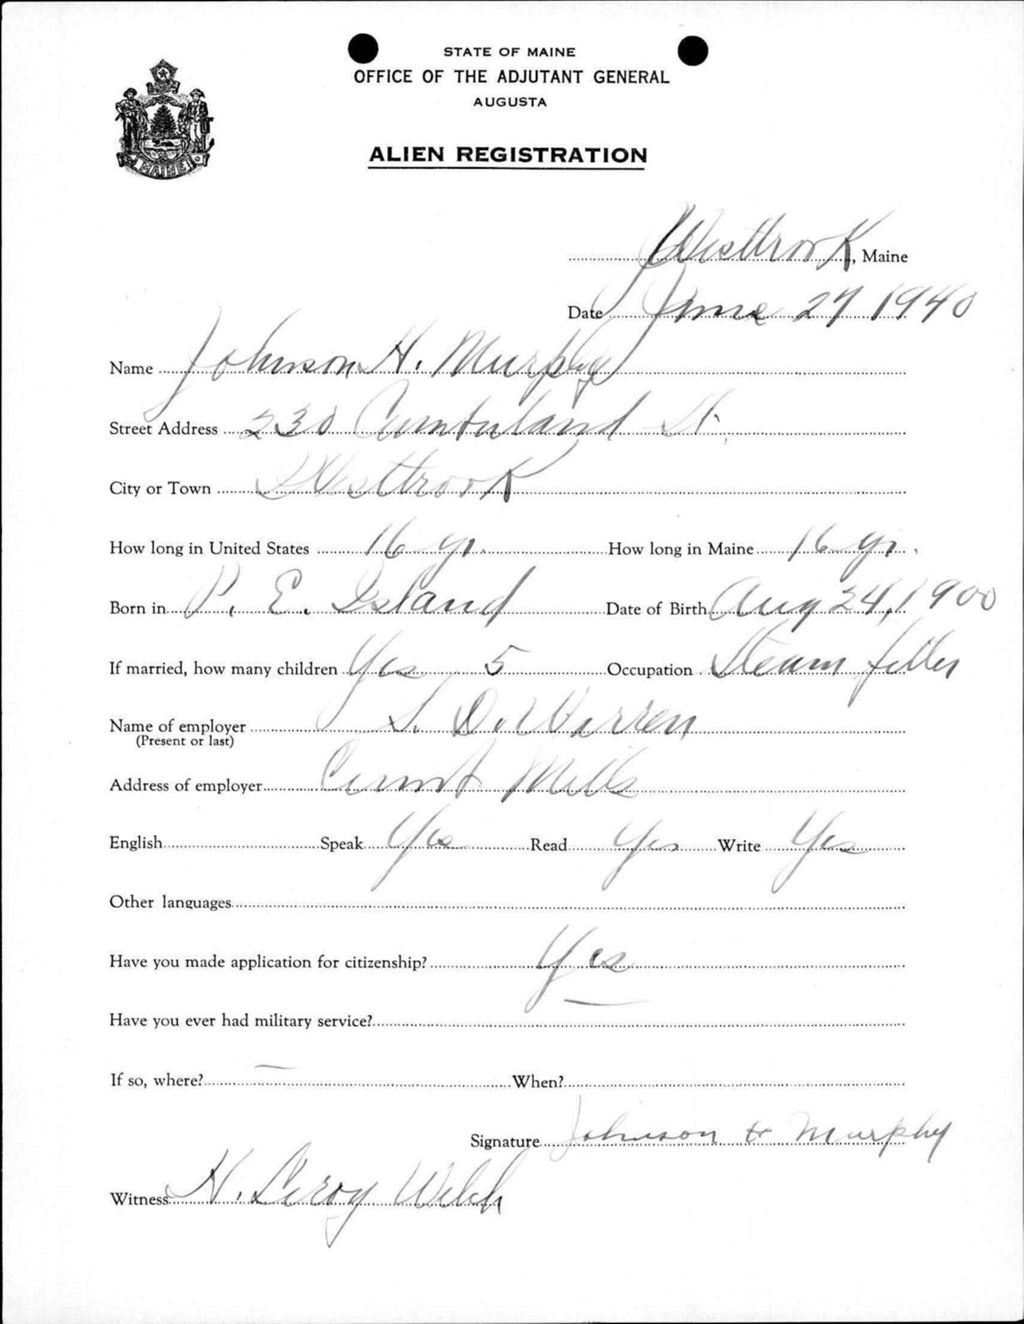 STATE OF MAINE
OFFICE OF THE ADJUTANT GENERAL
AUGUSTA
ALIEN REGISTRATION
MAINE
Westbrook, Maine
Date June 27 1940
Name Johnson H. Murphy
Street Address 230 Cumberland St.
City or Town Westbrook
How long in United States 16 yr. How long in Maine 16 yr.
Born in P. E. Island Date of Birth Aug 24, 1900
If married, how many children Yes 5 Occupation Steam fitter
Name of employer S. D. Warren
(Present or last)
Address of employer Mills
English Speak Yes Read Yes Write Yes
Other languages
Have you made application for citizenship? Yes
Have you ever had military service? —
If so, where? — When?
Signature Johnson H Murphy
Witness H. Leroy Welch